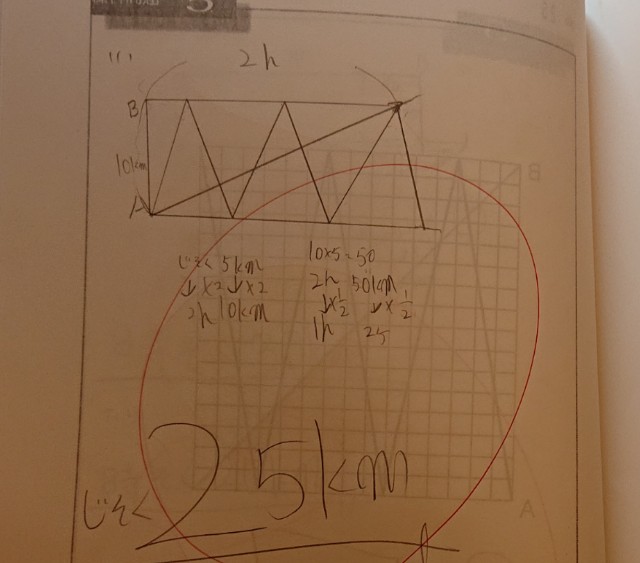 (1)
2h
B
10km
A
じそく 5km
↓×2 ↓×2
2h 10km
10×5=50
2h 50km
↓×1/2 ↓×1/2
1h 25
じそく 25km
B
A